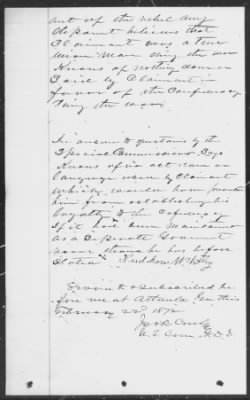 out of the rebel army
deponent believes that
Claimant was a true
Union Man during the war
Knows of nothing done or
Said by Claimant in
favor of the Confederacy
during the war.
In answer to questions by the
Special Commissioner Says
Knows of no act done or
language used by Claimant
which would have prevented
him from establishing his
loyalty to the Confederacy
if it had been Maintained
as a Separate Government
than he has before
Stated
Sworn to & subscribed be
fore me at Atlanta Ga this
February 22d 1872
U.S. Com.